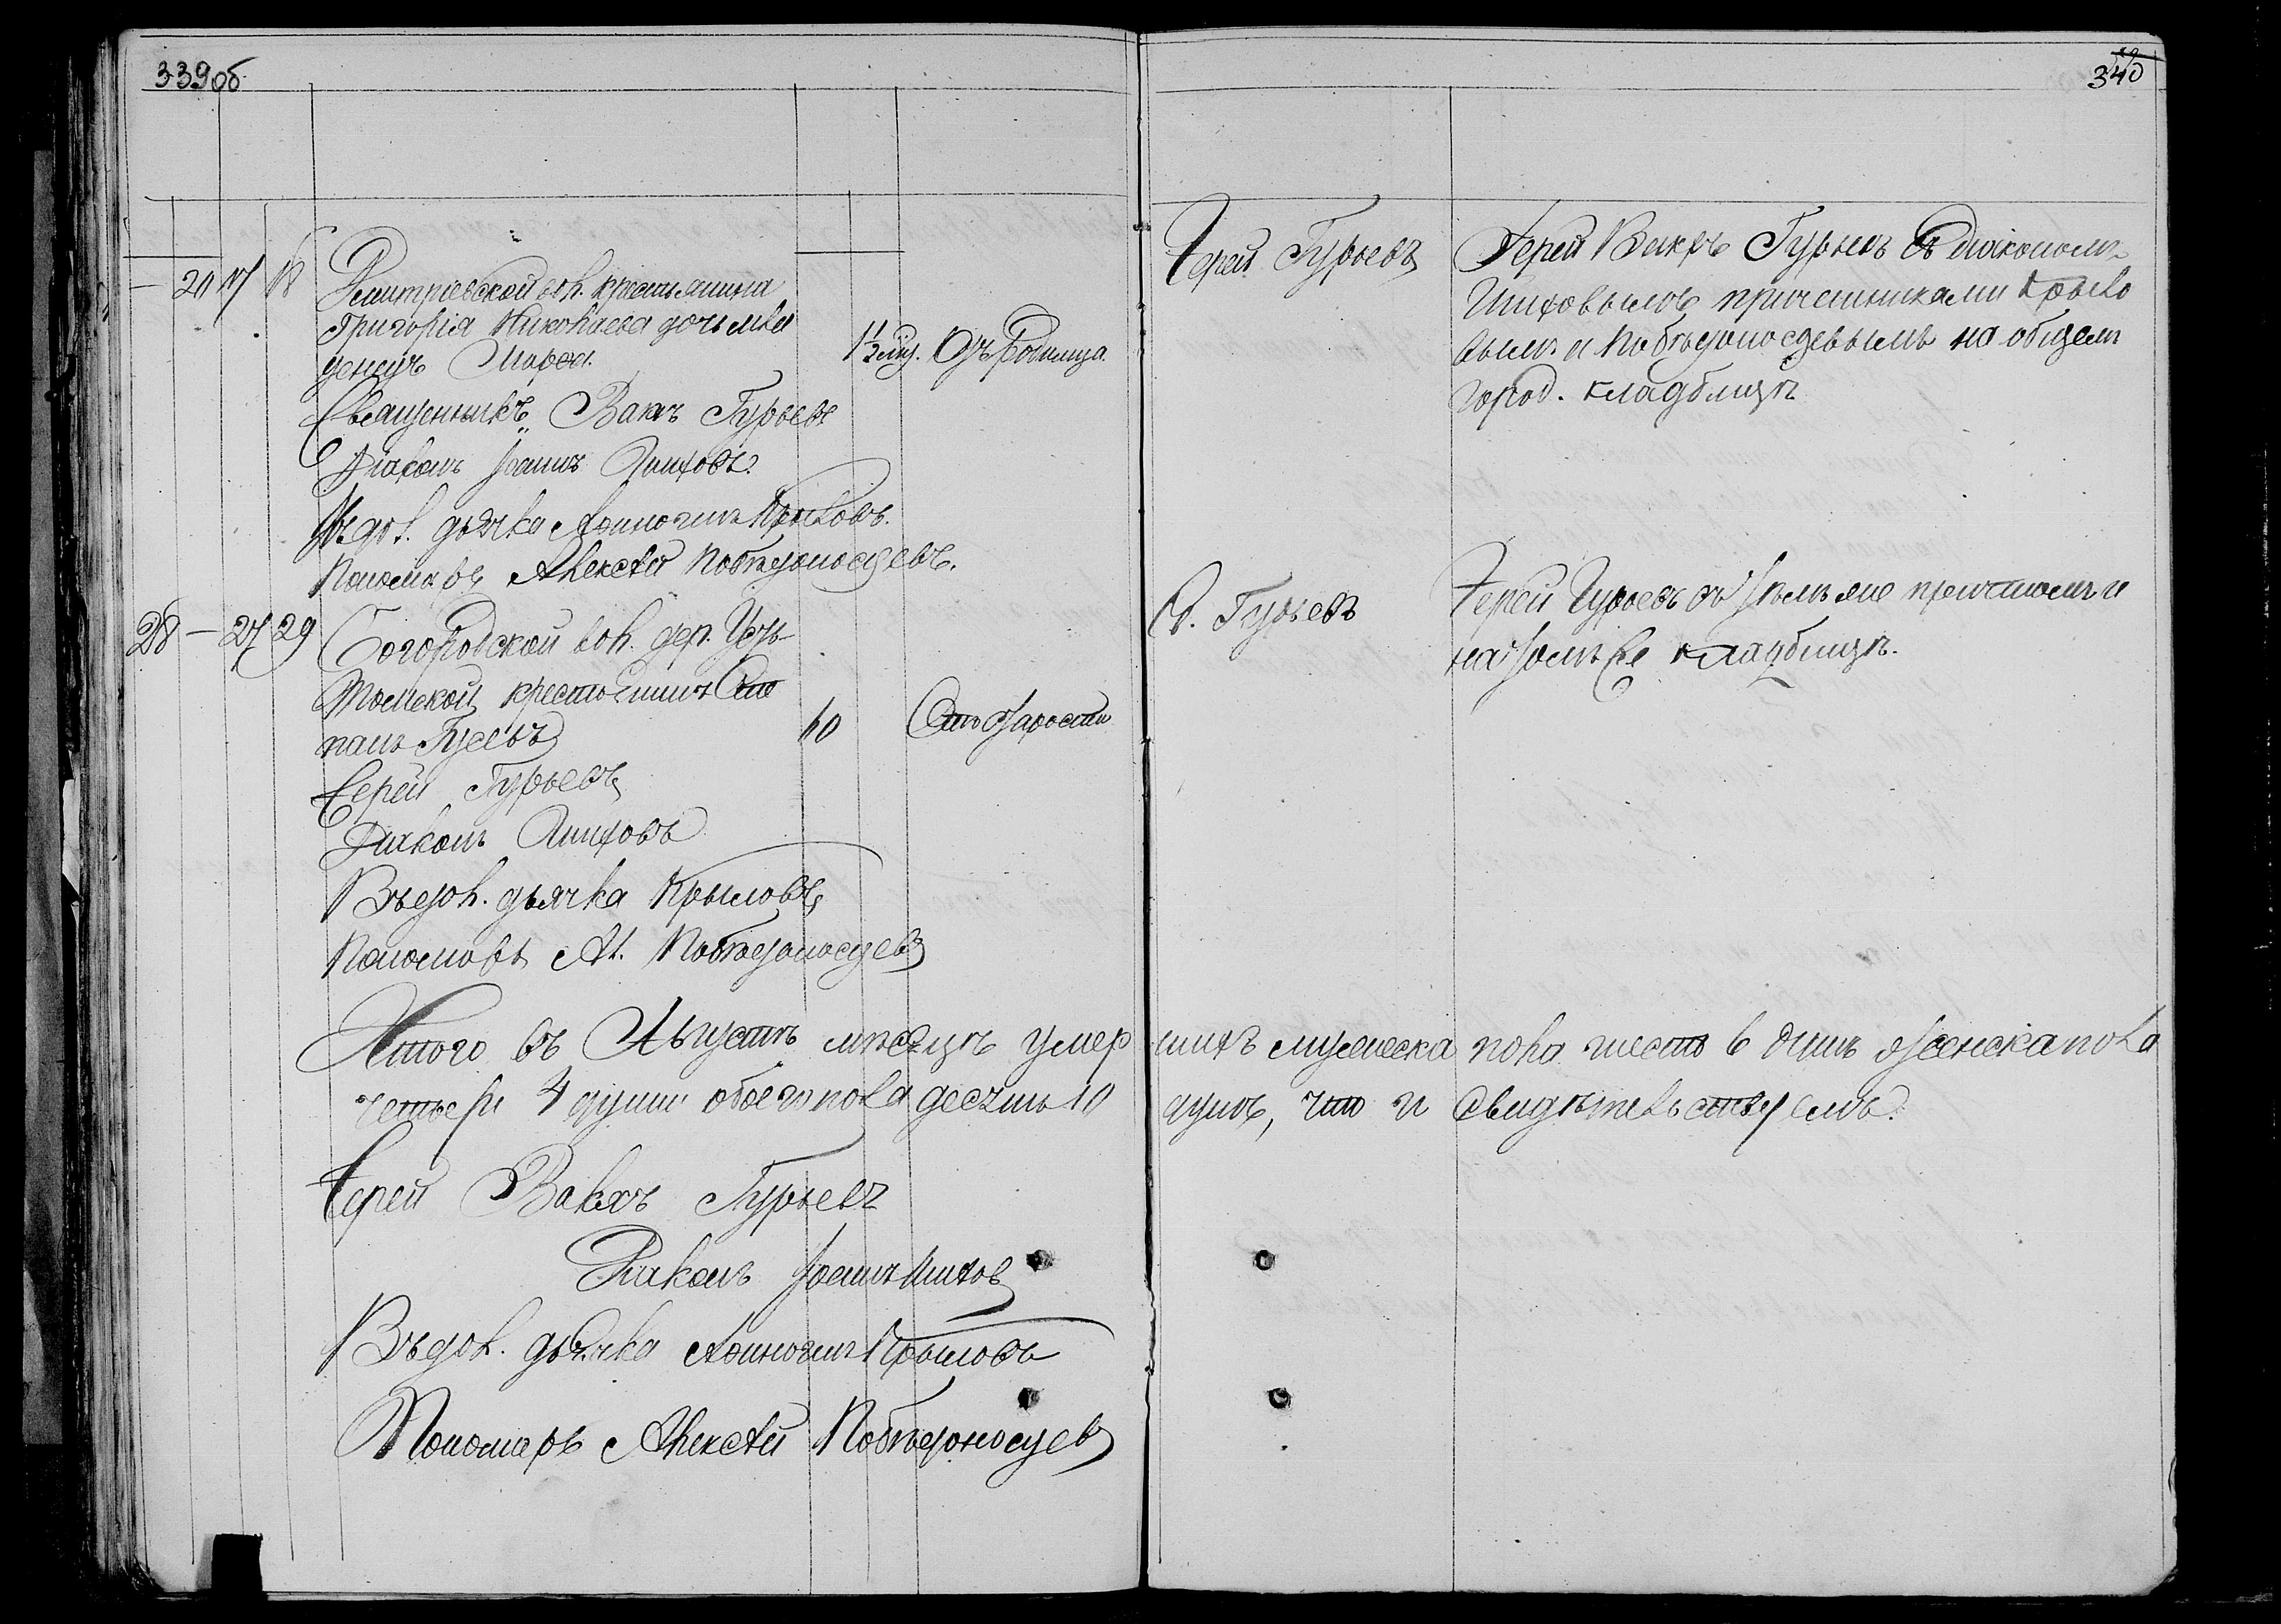 339об
340
— 21 17 18 Дмитріевской вол. крестьянина
Григорія Николаева дочь мла
денецъ Марѳа. 1½ мц. Отъ Родимца.
Священникъ Вакхъ Гурьевъ
Діаконъ Іоаннъ Аниховъ.
Въ дол. дьячка Аѳиногенъ Крыловъ.
Пономарь Алексѣй Побѣдоносцевъ.
Іерей Гурьевъ
Іерей Вакхъ Гурьевъ съ діакономъ
Аниховымъ причетниками Крыло
вымъ и Побѣдоносцевымъ на общемъ
город. кладбищѣ
28 — 27 29 Богородской вол. дер. Усть-
Томской крестьянинъ Сте
панъ Гусевъ 60 Отъ старости
Іерей Гурьевъ
Діаконъ Аниховъ
Въ дол. дьячка Крыловъ
Пономарь Ал. Побѣдоносцевъ
С. Гурьевъ
Іерей Гурьевъ съ тѣмъ же причтомъ и
на томъ же кладбищѣ.
Итого въ Августѣ мѣсяцѣ умершихъ мужеска пола шесть 6 душъ женска пола
четыре 4 души обоего пола десять 10 душъ, что и свидѣтельствуемъ.
Іерей Вакхъ Гурьевъ
Діаконъ Іоаннъ Аниховъ
Въ дол. дьячка Аѳиногенъ Крыловъ
Пономарь Алексѣй Побѣдоносцевъ